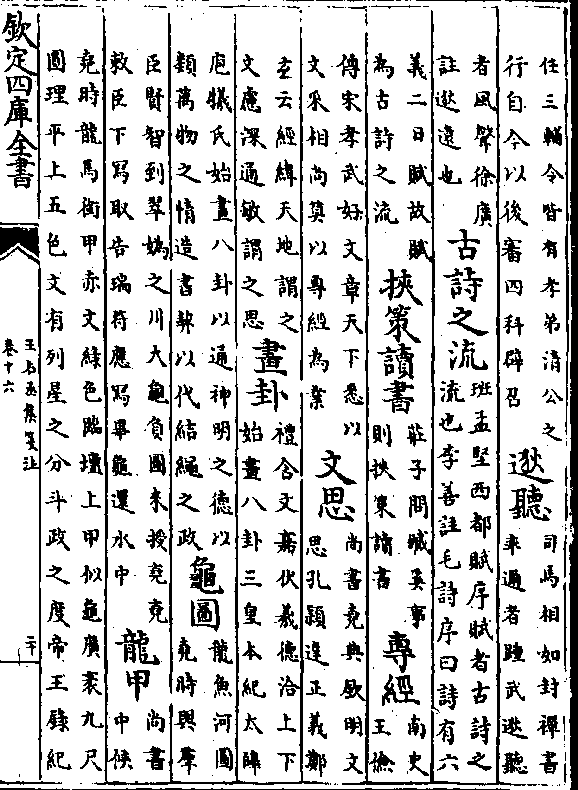 任三輔令皆有孝弟清公之
行自今以後審四科辟召
逖聽
司馬相如封禪書
率邇者踵武逖聽
者風聲徐廣
註逖遠也
古詩之流
班孟堅西都賦序賦者古詩之
流也李善註毛詩序曰詩有六
義二曰賦故賦
為古詩之流
挾策讀書
莊子問臧奚事
則挾筴讀書
專經
南史
王儉
傳宋孝武好文章天下悉以
文采相尚莫以專經為業
文思
尚書堯典欽明文
思孔穎達正義鄭
玄云經緯天地謂之
文慮深通敏謂之思
畫卦
禮含文嘉伏羲德洽上下
始畫八卦三皇本紀太皡
庖犧氏始畫八卦以通神明之德以
類萬物之情造書契以代結繩之政
龜圖
龍魚河圖
堯時與羣
臣賢智到翠媯之川大龜負圖來授堯堯
敕臣下寫取告瑞符應寫畢龜還水中
龍甲
尚書
中候
堯時龍馬銜甲赤文綠色臨壇上甲似龜廣袤九尺
圓理平上五色文有列星之分斗政之度帝王錄紀
欽定四庫全書
王右丞集箋注
卷十六
二十